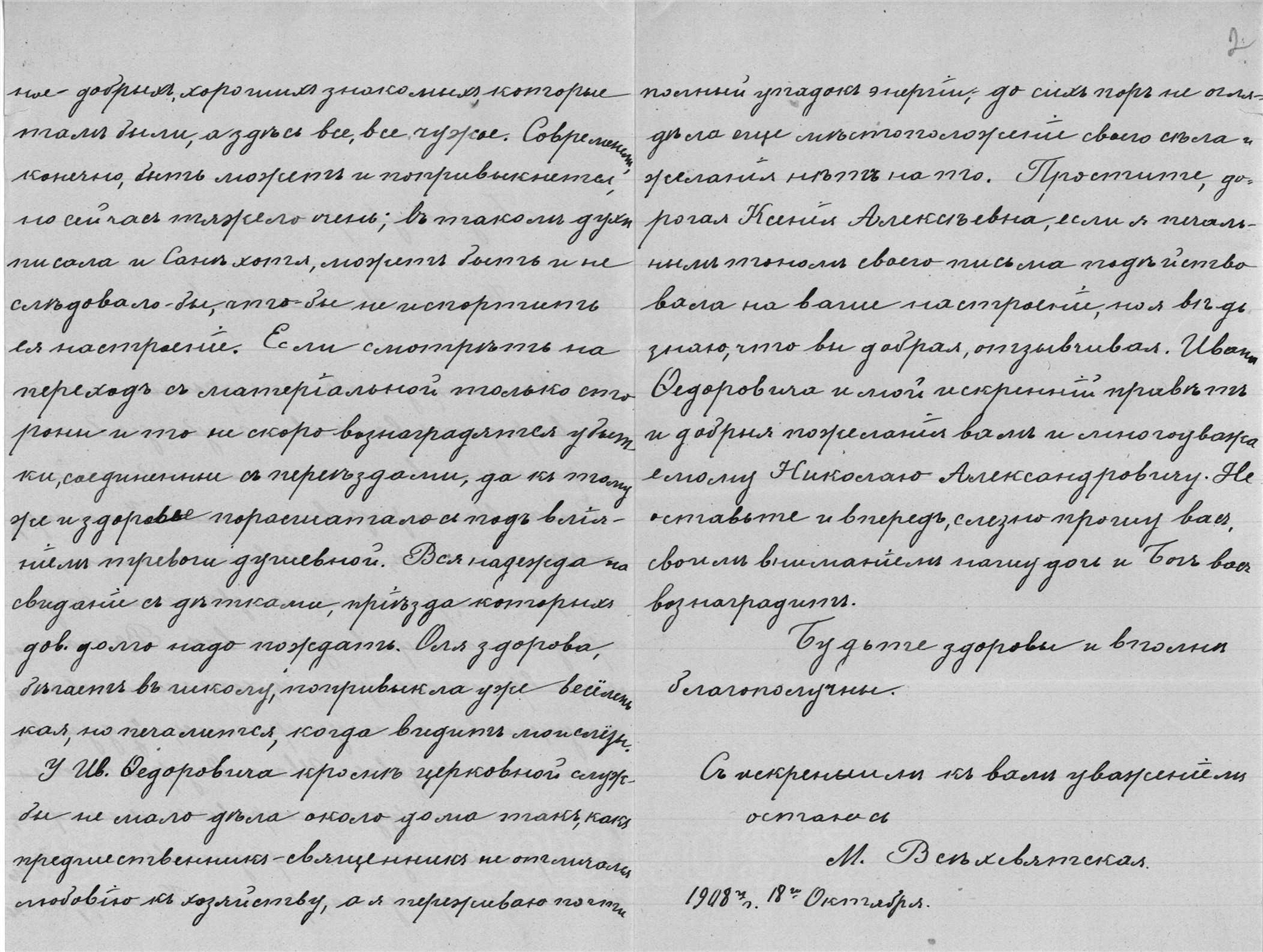 ное - добрыхъ, хорошихъ знакомыхъ которые
тамъ были, а здѣсь все, все чужое. Современемъ,
конечно, быть можетъ и попривыкнется,
но сейчасъ тяжело очень; въ такомъ духѣ
писала и Санѣ хотя, можетъ быть и не
слѣдовало-бы, что-бы не испортить
ея настроеніе. Если смотрѣть на
переходъ съ матеріальной только сто
роны и то не скоро вознаградятся убыт-
ки, соединенные съ переѣздами, да къ тому
же и здоровье порасшаталось подъ влія-
ніемъ тревоги душевной. Вся надежда на
свиданіе съ дѣтками, пріѣзда которыхъ
дов. долго надо пождать. Оля здорова,
бѣгаетъ въ школу, попривыкла уже весёлень
кая, но печалится, когда видитъ мои слёзы.
У Ив. Ѳедоровича кромѣ церковной служ-
бы не мало дѣла около дома такъ, какъ
предшественникъ-священникъ не отличался
любовію къ хозяйству, а я переживаю почти
2
полный упадокъ энергіи; до сихъ поръ не огля-
дѣла еще мѣстоположеніе своего села и
желанія нѣтъ на то. Простите, до-
рогая Ксенія Алексѣевна, если я печаль-
нымъ тономъ своего письма подѣйство
вала на ваше настроеніе, но я вѣдь
знаю, что вы добрая, отзывчивая. Ивана
Ѳедоровича и мой искренній привѣтъ
и добрыя пожеланія вамъ и многоуважа
емому Николаю Александровичу. Не
оставьте и впередъ, слезно прошу васъ,
своимъ вниманіемъ нашу дочь и Богъ васъ
вознаградитъ.
Будьте здоровы и вполнѣ
благополучны.
Съ искреннимъ къ вамъ уваженіемъ
остаюсь
М. Всѣхсвятская.
1908 г. 18го Октября.